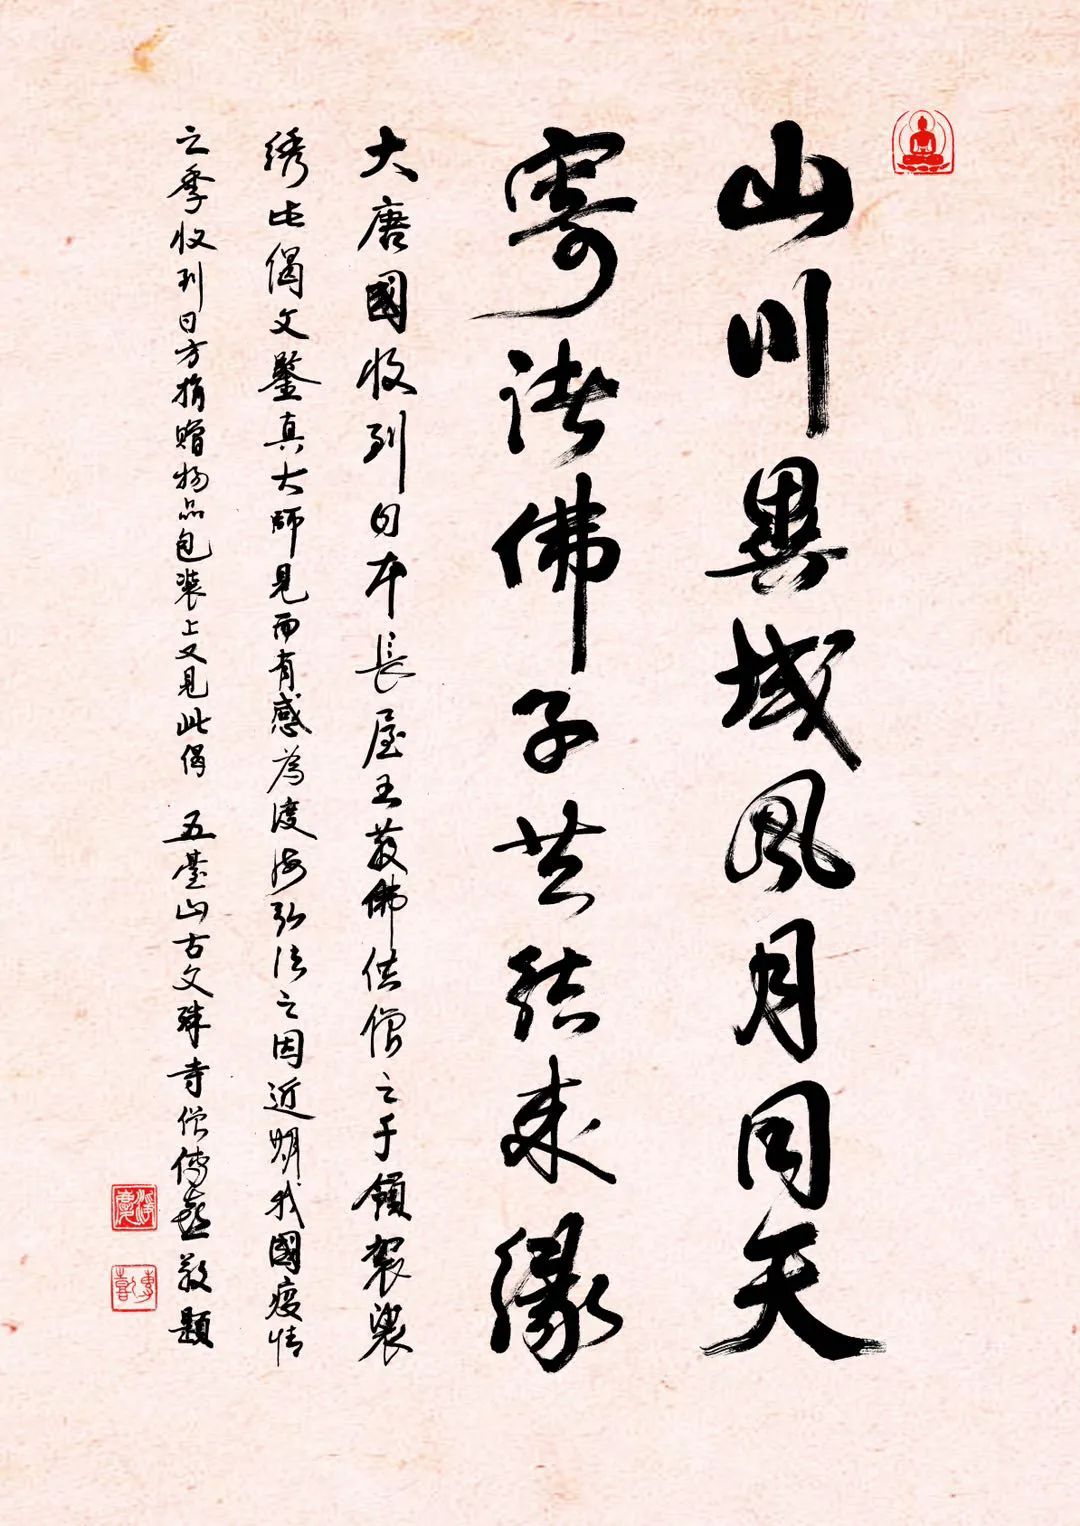 山川異域風月同天
寄諸佛子共結來緣
大唐國收到日本長屋王敬佛供僧之千領袈裟
绣此偈文鑒真大師見而有感為渡海弘法之因近期我國疫情
之季收到日方捐赠物品包装上又見此偈 五臺山古文殊寺僧傳喜敬題
傳喜